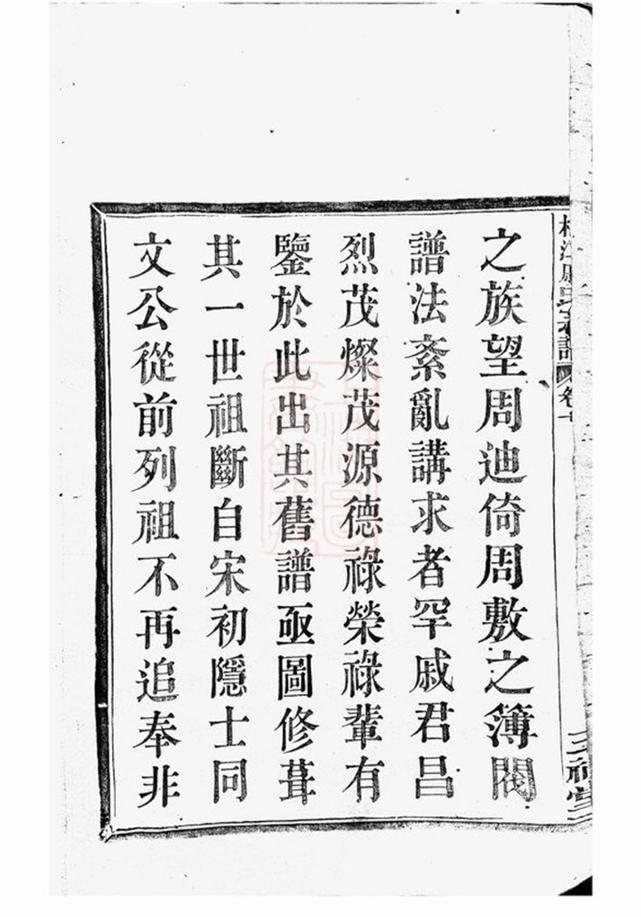 之族望周迪倚周敷之簿閥
譜法紊亂講求者罕戚君昌
烈茂燦茂源德祿榮祿輩有
鑒於此出其舊譜亟圖修葺
其一世祖斷自宋初隱士同
文公從前列祖不再追奉非